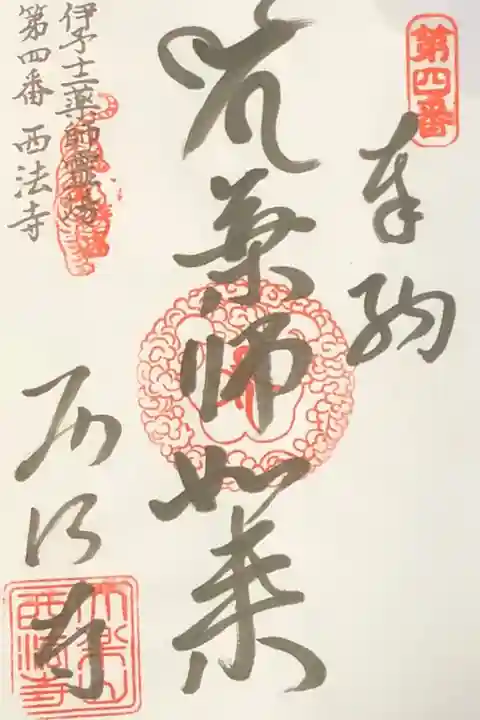 第四番
奉納
薬師如来
西法寺
大楽山
西法寺
伊予十二薬師霊場
第四番 西法寺